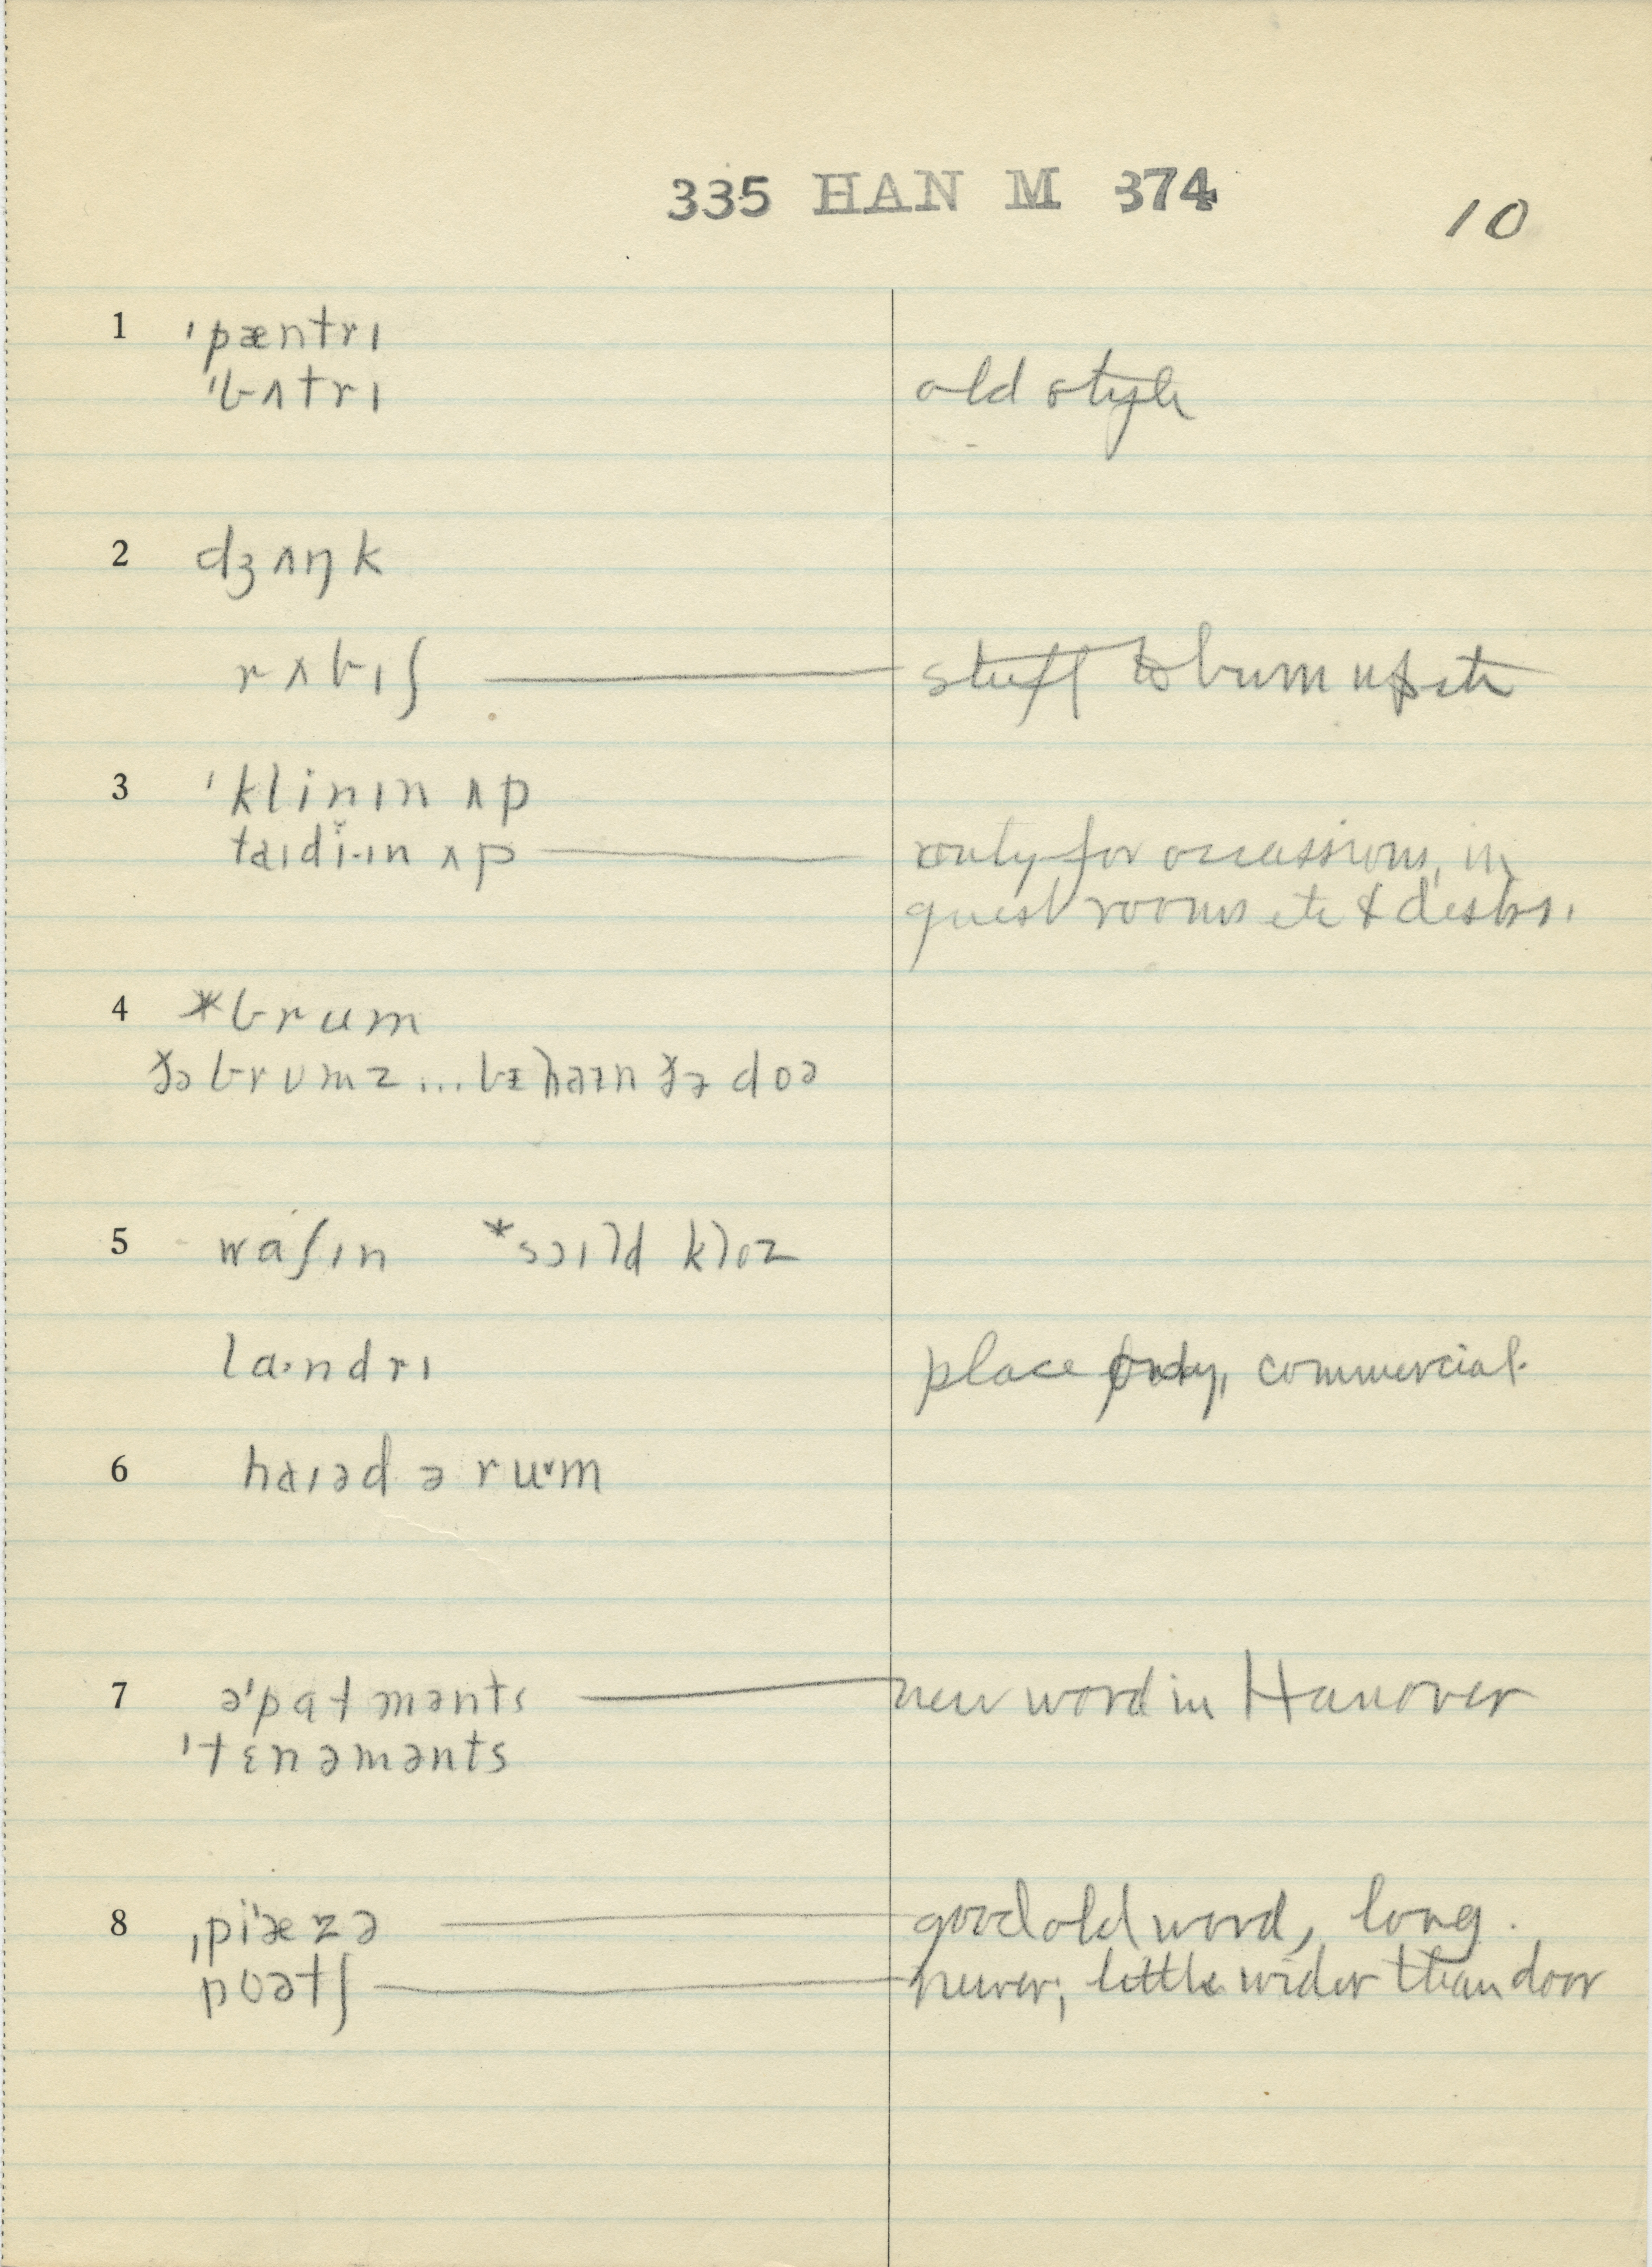 335 HAN M 374
10
1 ˈpæntrɪ
ˈbʌtrɪ old style
2 dʒʌŋk
rʌbɪʃ — stuff to burn up etc
3 ˈklinɪn ʌp
taɪdi·ɪn ʌp — only for occassions, in
guest rooms etc & desks.
4 *brum
ðə brumz ... bɪhaɪn ðə doə
5 waʃɪn *sɔɪld kloz
la·ndrɪ place only, commercial.
6 haɪəd ə ru˅m
7 əˈpatmənts — new word in Hanover
ˈtɛnəmənts
8 ˌpiˈæzə — good old word, long.
poətʃ — newer; little wider than door